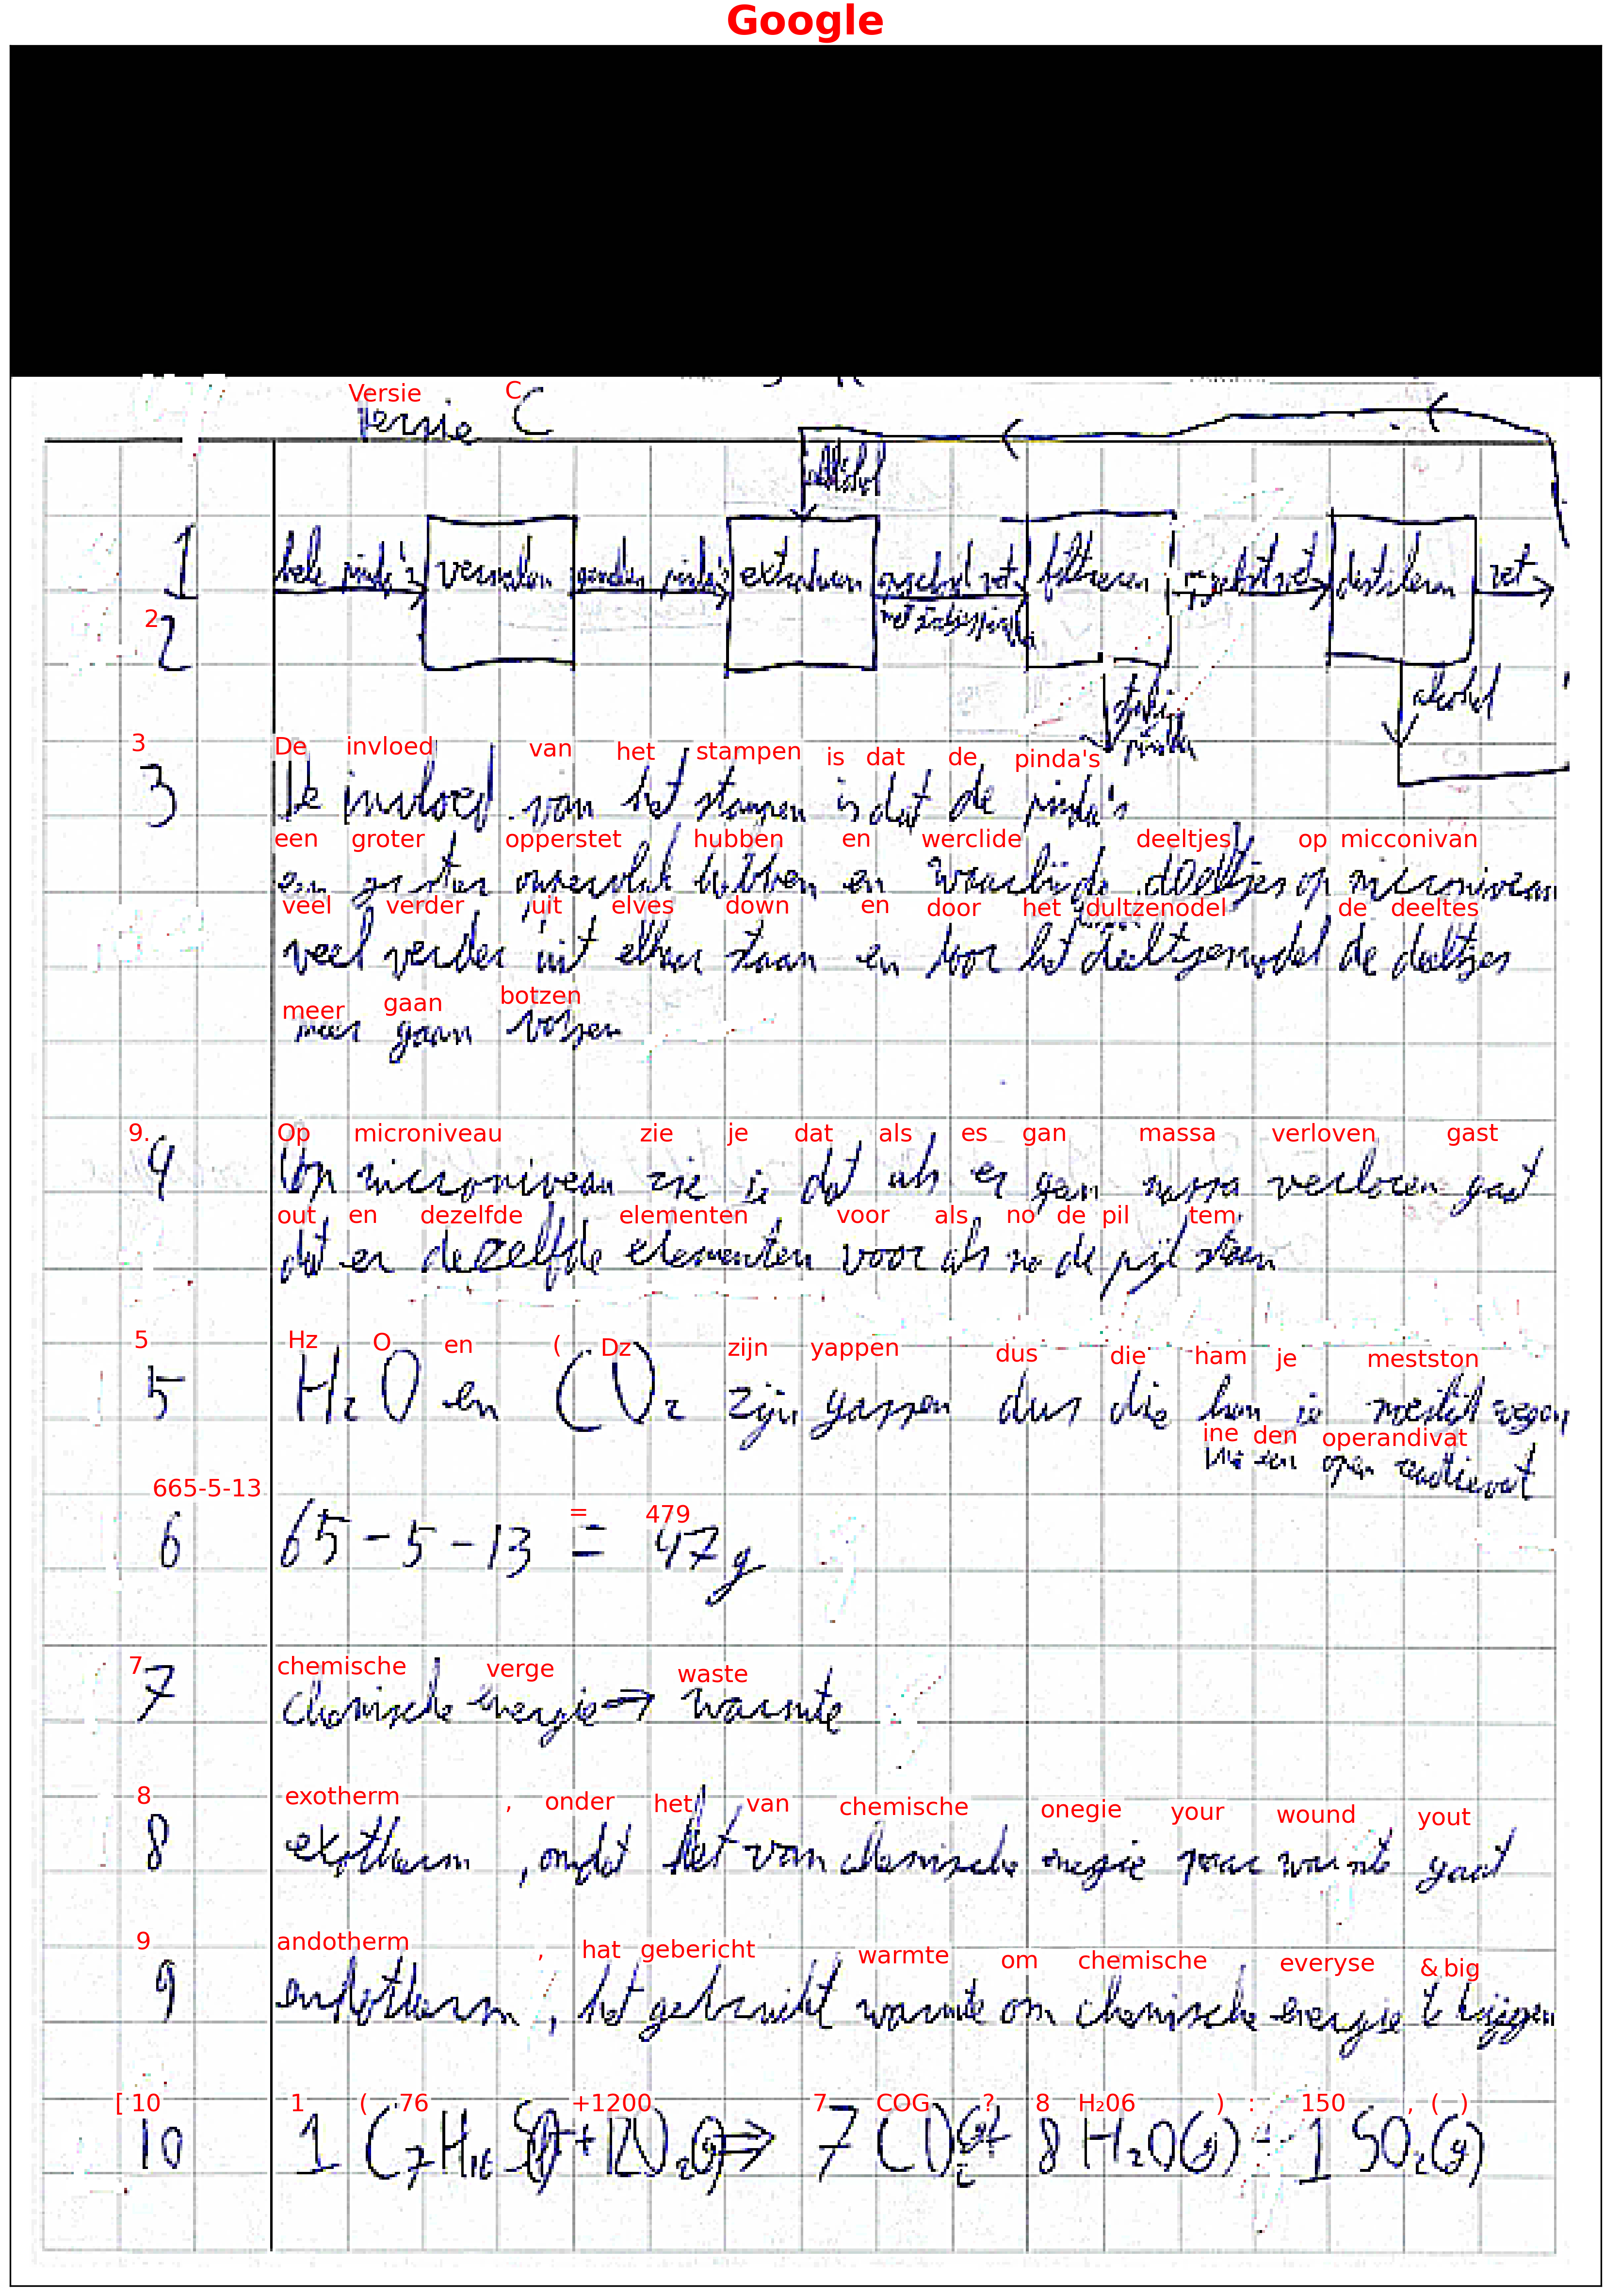 Google
Versie C
Versie C
alcohol
1 hele pinda's vermalen gemalen pinda's extraheren opgelost vet filtreren opgelost vet destilleren vet
2
2
met stukjes pinda
stukjes pinda
alcohol
3 De invloed van het stampen is dat de pinda's
3 De invloed van het stampen is dat de pinda's
een groter opperstet hubben en werclide deeltjes op micconivan
een groter oppervlak hebben en waarbij de deeltjes op microniveau
veel verder uit elves down en door het dultzenodel de deeltes
veel verder uit elkaar staan en door het deeltjesmodel de deeltjes
meer gaan botzen
meer gaan botsen
9. Op microniveau zie je dat als es gan massa verloven gast
4 Op microniveau zie je dat als er geen massa verloren gaat
out en dezelfde elementen voor als no de pil tem
dat er dezelfde elementen voor als na de pijl staan
5 Hz O en ( Dz zijn yappen dus die ham je mestston
5 H₂O en CO₂ zijn gassen dus die kan je moeilijk wegen
ine den operandivat
in een open reactievat
665-5-13 = 479
6 65-5-13 = 47g
7 chemische verge waste
7 chemische energie → warmte
8 exotherm , onder het van chemische onegie your wound yout
8 exotherm, omdat het van chemische enegie naar warmte gaat
9 andotherm , hat gebericht warmte om chemische everyse & big
9 endotherm, het gebruikt warmte om chemische energie te krijgen
[·10 1 ( 76 +1200 7 COG ? 8 H₂06 ) : 150 , ( )
10 1 C₇H₁₆S(l)+12O₂(g) ⇒ 7 CO₂(g)+ 8 H₂O(g) + 1 SO₂(g)